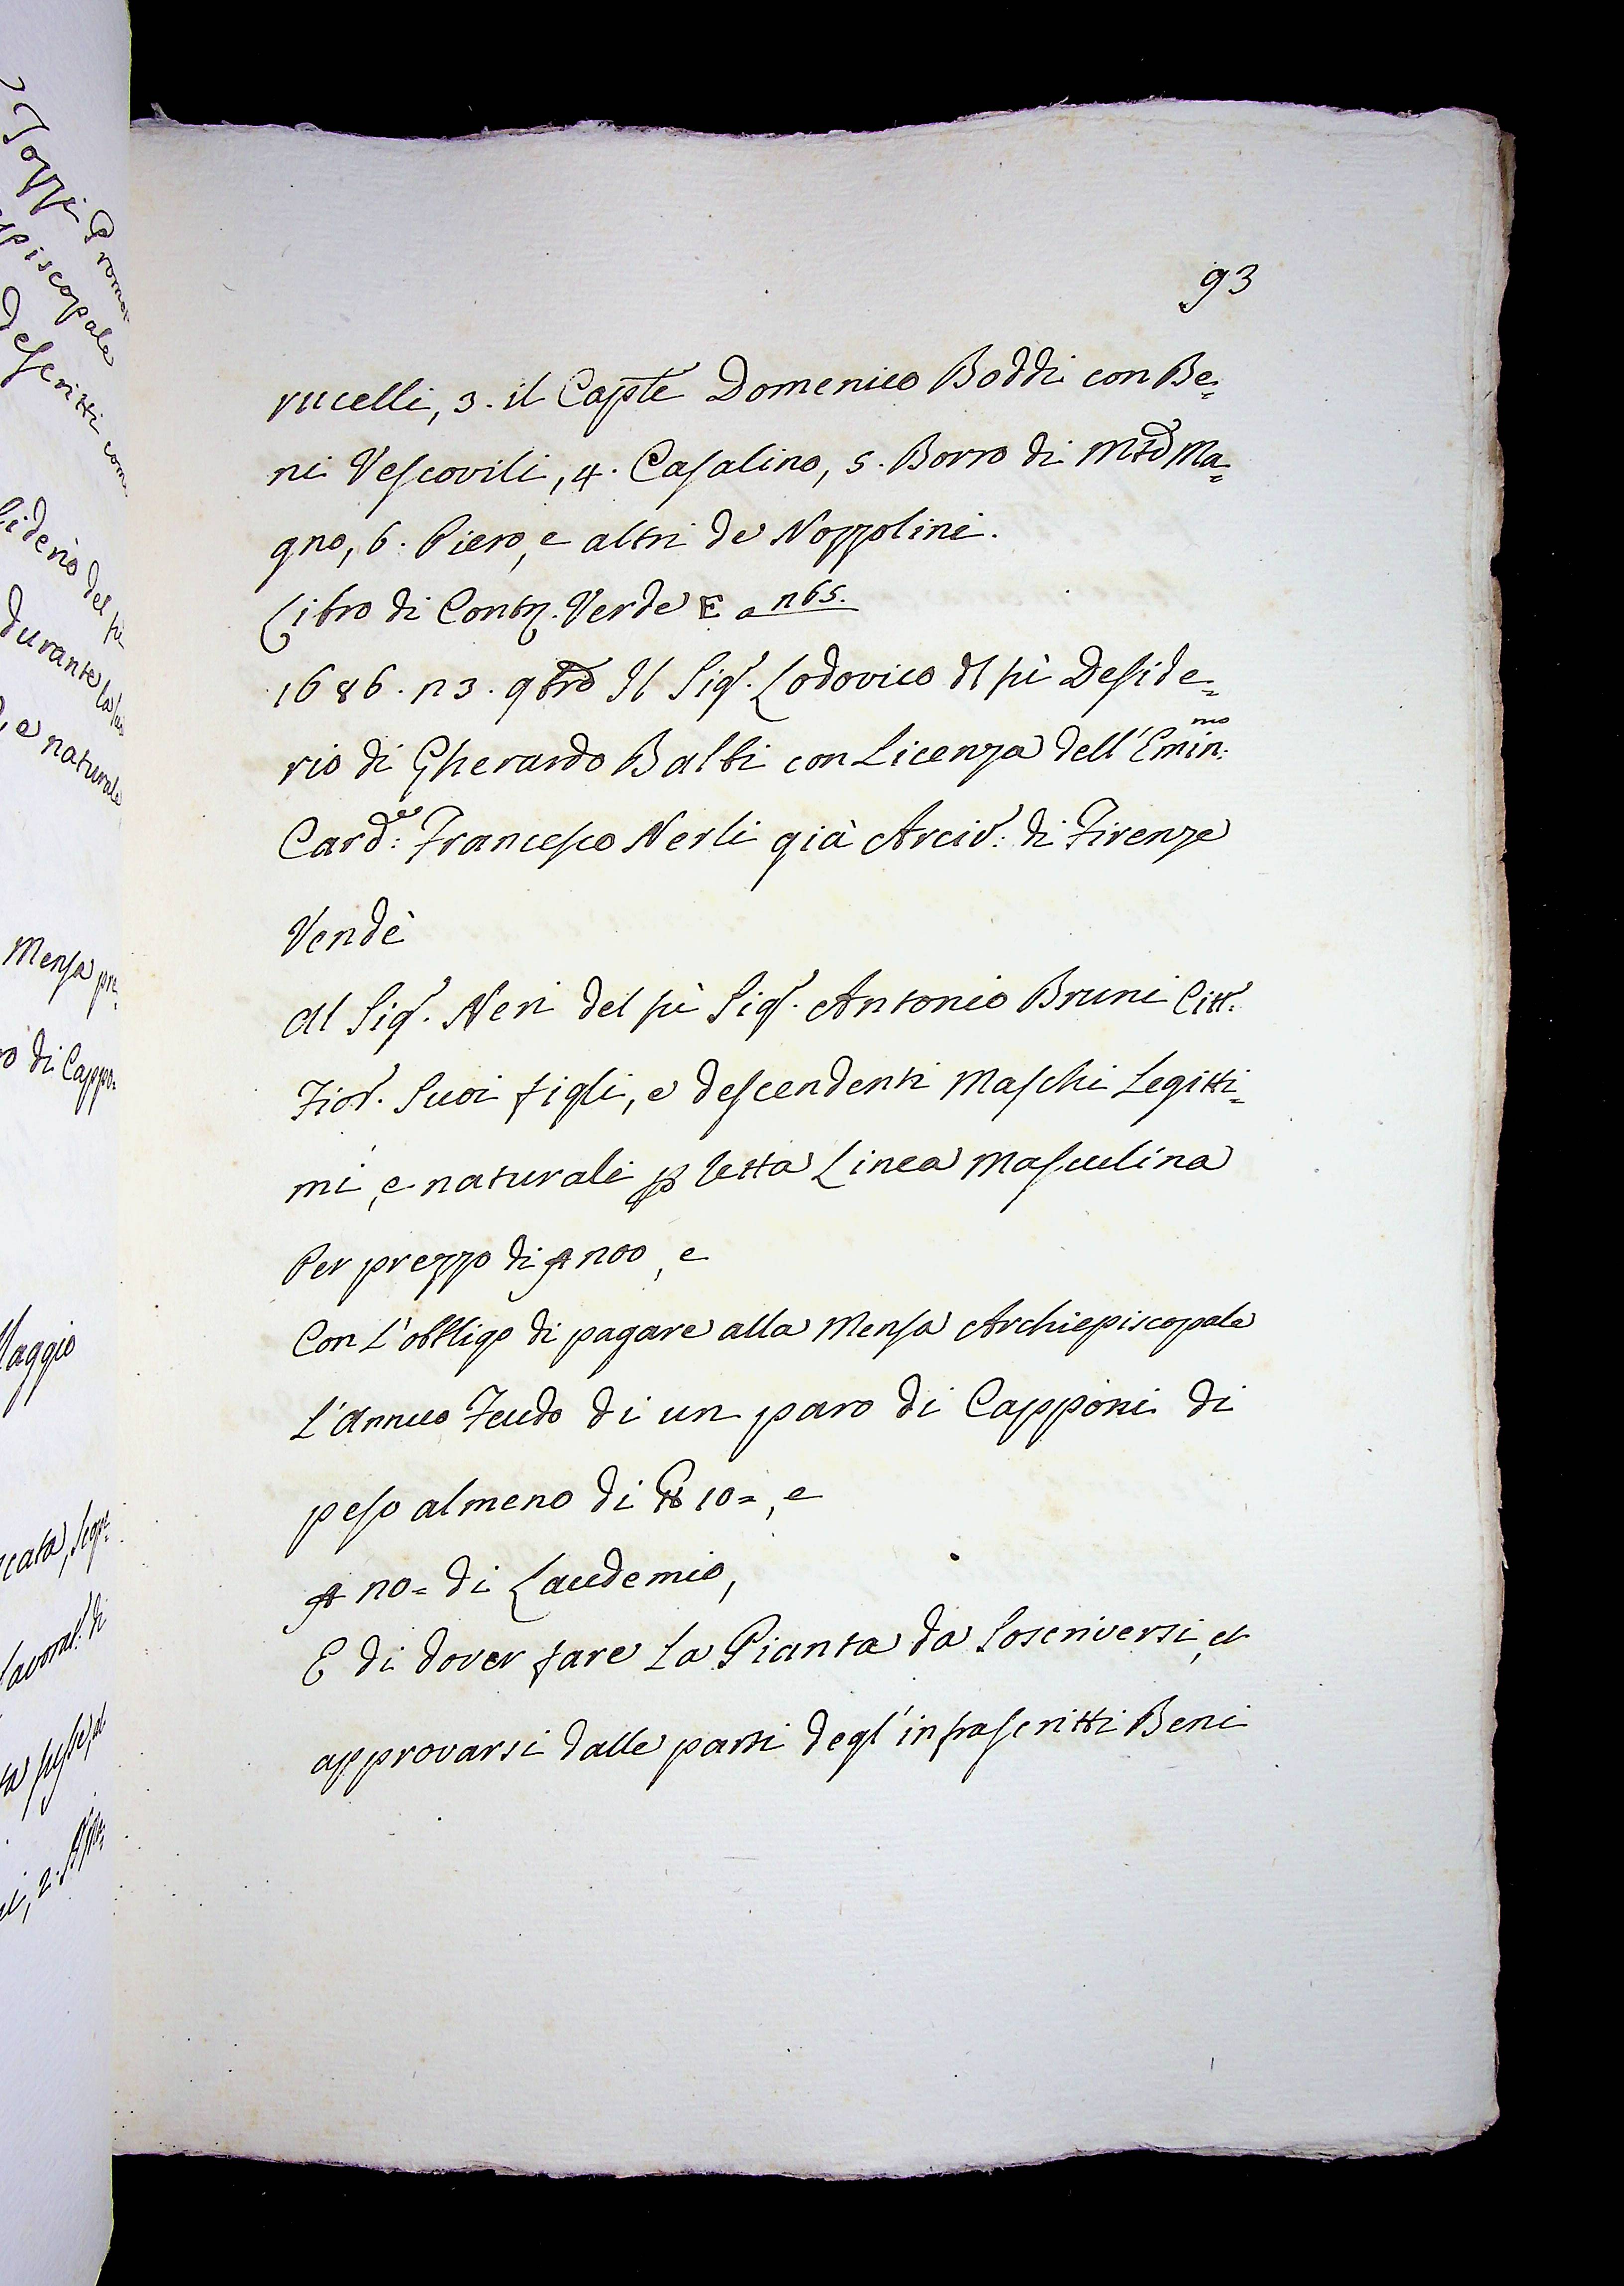 93
rucelli, 3. il Cap.te Domenico Boddi con Be=
ni Vescovili, 4. Casalino, 5. Borro di Ma=
gno, 6. Piero, e altri de Nozzolini.
Libro di Contr. Verde E a 265.
1686. 23. 9bre Il Sig.r Lodovico dl fù Deside=
rio di Gherardo Balbi con Licenza dell'Emin:mo
Card:e Francesco Nerli già Arciv: di Firenze
Vendè
Al Sig.r Neri del fù Sig.r Antonio Bruni Citt:
Fior. Suoi figli, e descendenti Maschi Legitti=
mi, e naturali p retta Linea Masculina
Per prezzo di 200, e
Con L'obbligo di pagare alla Mensa Archiepiscopale
L'Annuo Feudo di un paro di Capponi di
peso almeno di lb 10=, e
20= di Laudemio,
E di dover fare La Pianta da Soscriversi, et
approvarsi dalle parti degl'infrascritti Beni
episcopale
descritti com
del fù
durante la
e naturale
Mensa pre=
di Cappo=
Maggio